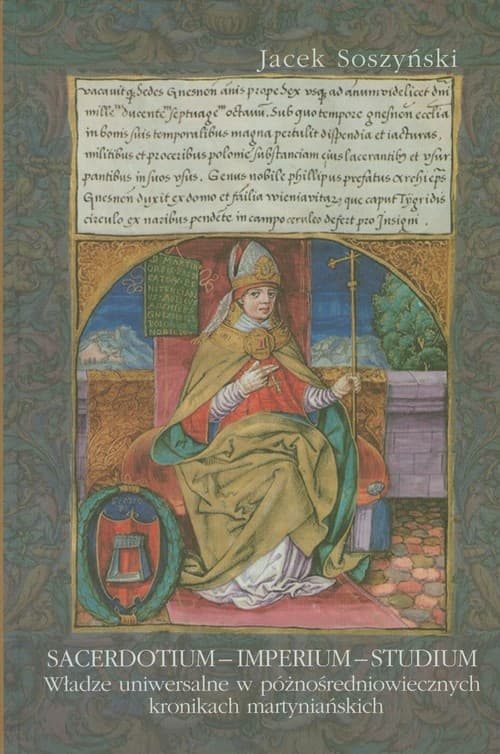 Jacek Soszyński
vacavitq; Sedes Gnesnen̄ an̄is prope Sex usq; ad an̄um videlicet dn̄i
mille^mū ducente^mū septuage^mū octavū, Sub quo tempore gnesnen̄ ecclīa
in bonis suis temporalibus magna pertulit dispendia et iacturas,
militibus et proceribus polonie substanciam eius lacerantib9 et usur
pantibus in suos usus. Genus nobile phillipus prefatus Archieps
Gnesnen̄ duxit ex domo et fāilia wieniavitarz que caput Tygridis
circulo ex naribus pendēte in campo ceruleo defert pro Insigni.
D MARTIN
SACERDOTIUM – IMPERIUM – STUDIUM
Władze uniwersalne w późnośredniowiecznych
kronikach martyniańskich